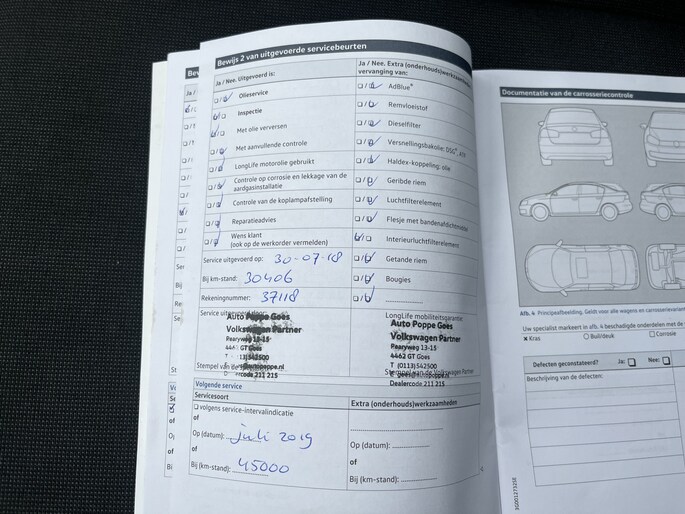 Bewijs 2 van uitgevoerde servicebeurten
Ja / Nee. Uitgevoerd is:
Olieservice
Inspectie
Met olie verversen
Met aanvullende controle
LongLife motorolie gebruikt
Controle op corrosie en lekkage van de
aardgasinstallatie
Controle van de koplampafstelling
Reparatieadvies
Wens klant
(ook op de werkorder vermelden)
Service uitgevoerd op: 30-07-18
Bij km-stand: 30406
Rekeningnummer: 37118
Service uitgevoerd door:
Auto Poppe Goes
Volkswagen Partner
Paaryweg 13-15
GT Goes
13)542500
211 215
Stempel van
Ja / Nee. Extra (onderhouds)werkzaamheden
vervanging van:
AdBlue®
Remvloeistof
Dieselfilter
Versnellingsbakolie: DSG®, ATF
Haldex-koppeling: olie
Geribde riem
Luchtfilterelement
Flesje met bandenafdichtmiddel
Interieurluchtfilterelement
Getande riem
Bougies
LongLife mobiliteitsgarantie:
Auto Poppe Goes
Volkswagen Partner
Paaryweg 13-15
4462 GT Goes
T (0113)542500
Dealercode 211 215
Volgende service
Servicesoort
volgens service-intervalindicatie
of
Op (datum): juli 2019
of
Bij (km-stand): 45000
Extra (onderhouds)werkzaamheden
Op (datum):
of
Bij (km-stand):
Documentatie van de carrosseriecontrole
Afb. 4 Principeafbeelding. Geldt voor alle wagens en carrosserievarianten
Uw specialist markeert in afb. 4 beschadigde onderdelen met de
x Kras
O Buil/deuk
□ Corrosie
Defecten geconstateerd?
Ja:
Nee:
Beschrijving van de defecten: